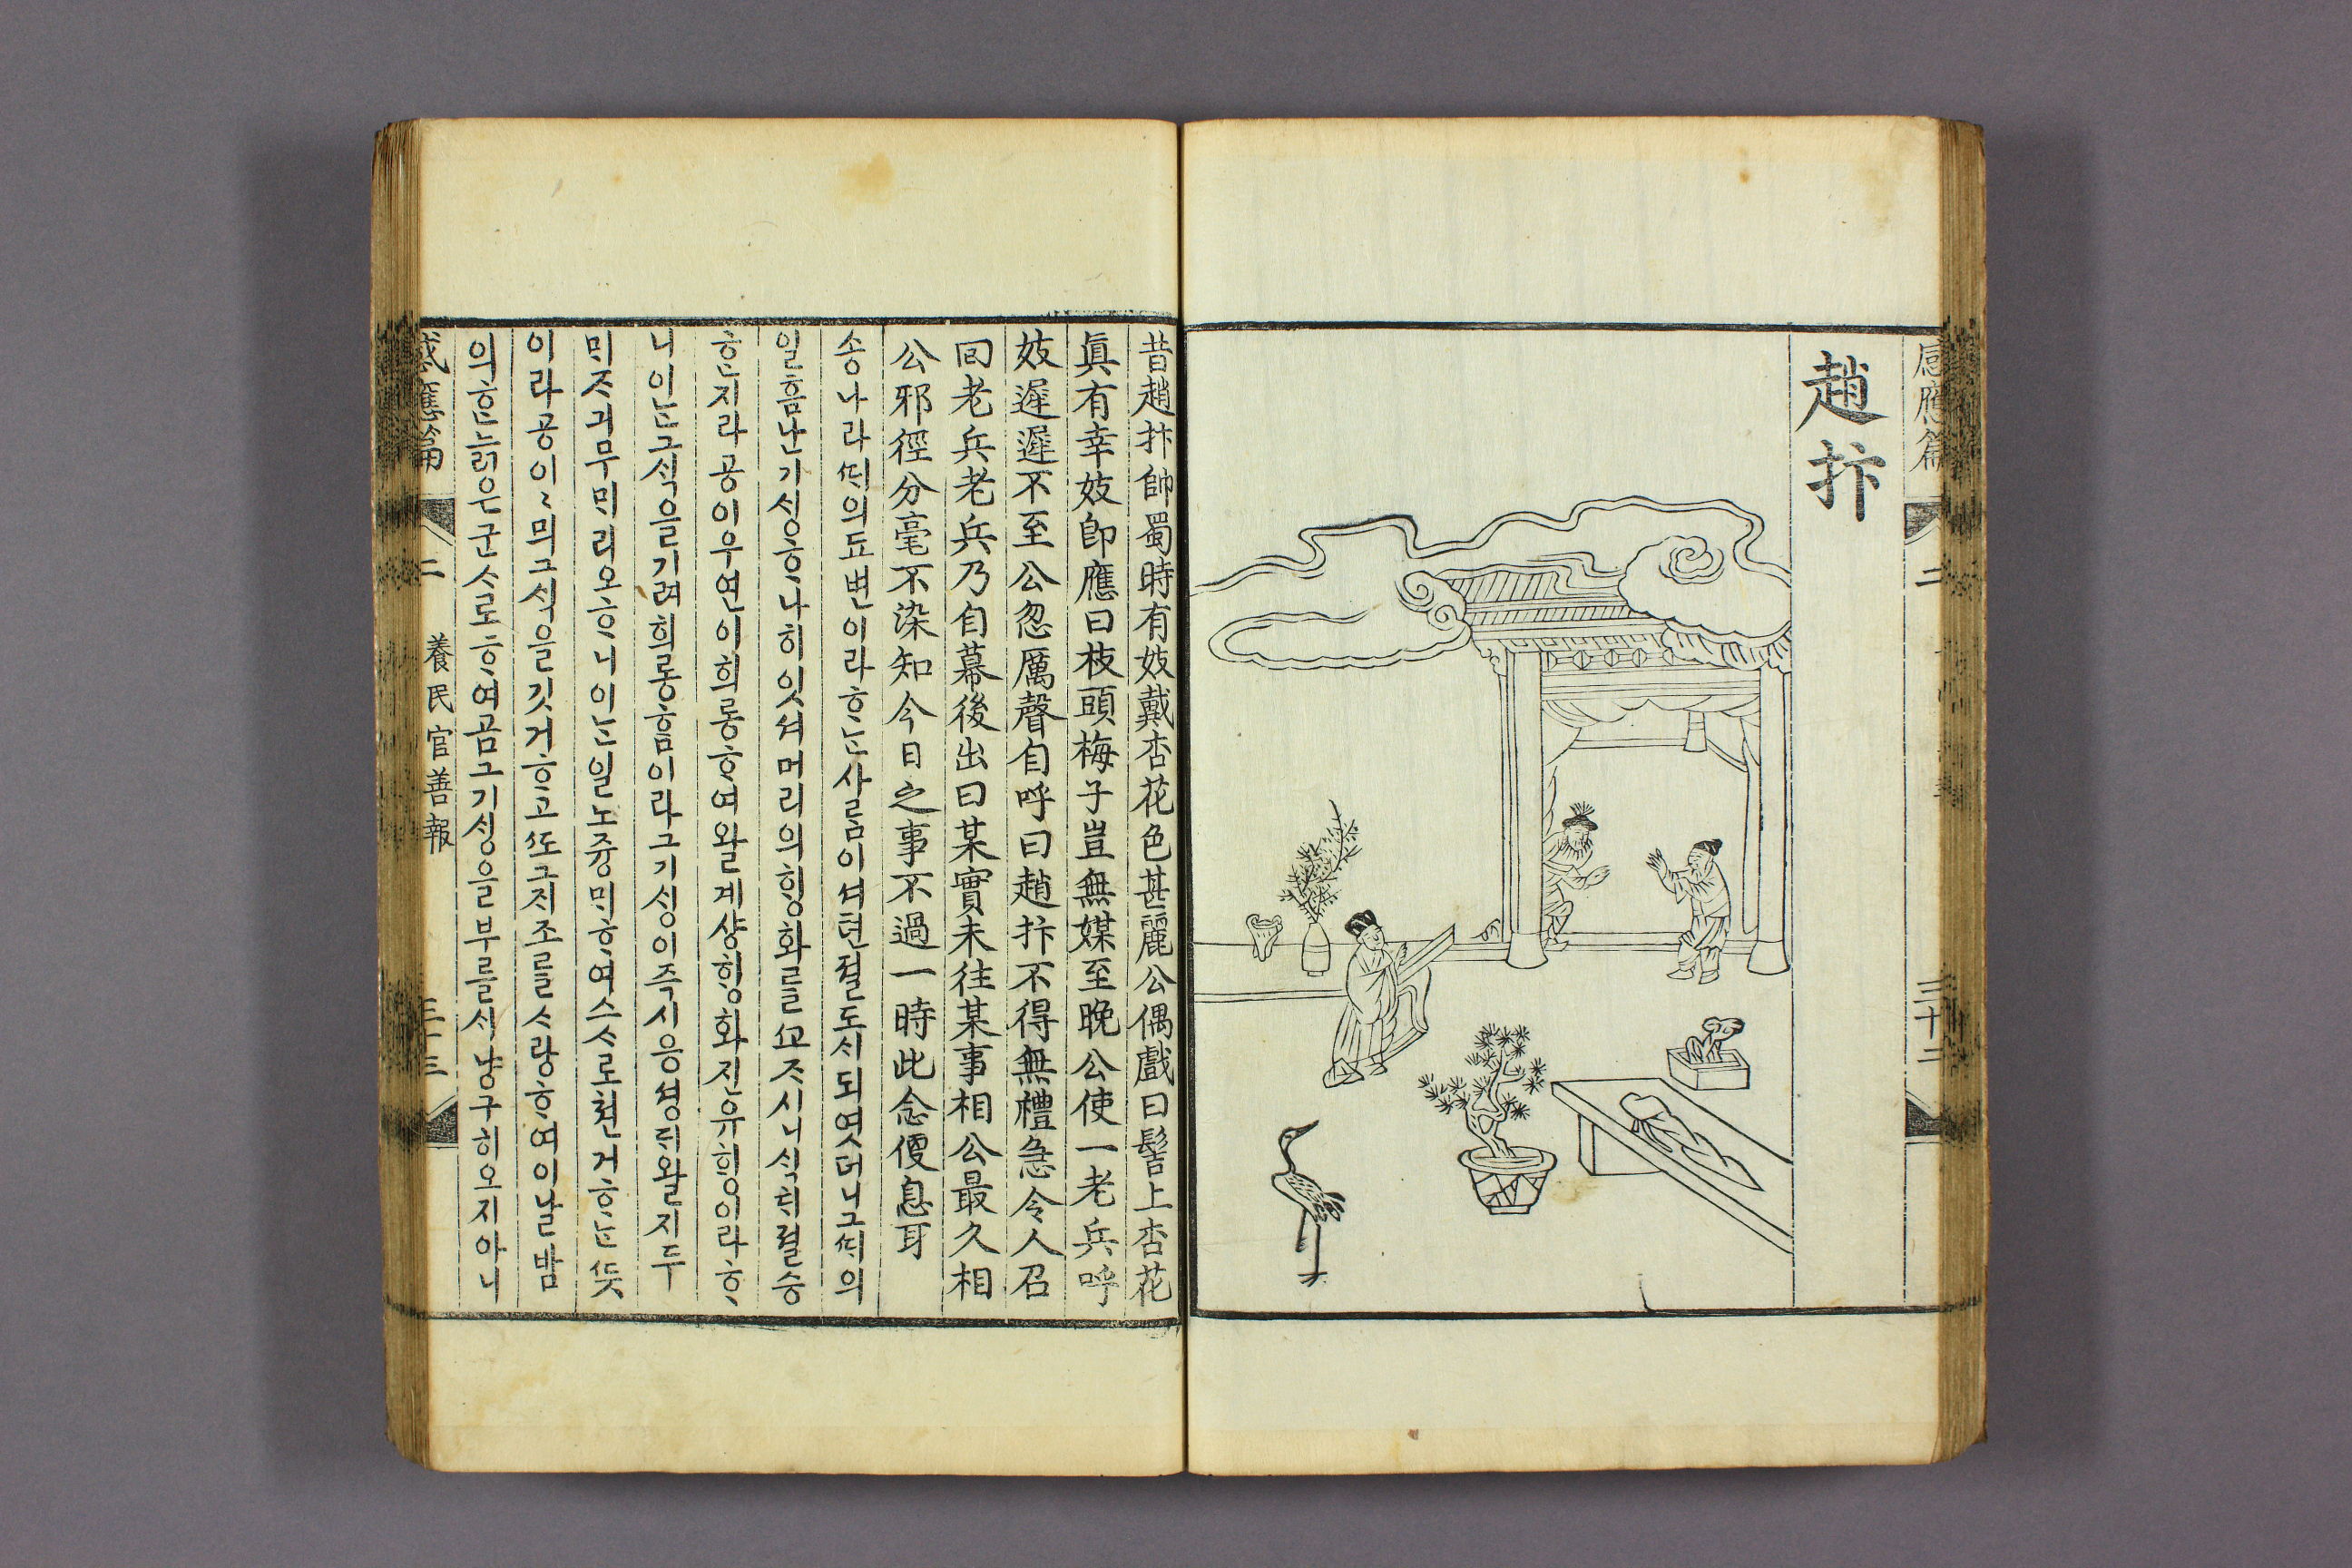 感應篇 二 三十二
趙抃
昔趙抃帥蜀時有妓戴杏花色甚麗公偶戲曰髻上杏花
眞有幸妓卽應曰枝頭梅子豈無媒至晩公使一老兵呼
妓遲遲不至公忽厲聲自呼曰趙抃不得無禮急令人召
回老兵老兵乃自幕後出曰某實未往某事相公最久相
公邪徑分毫不染知今日之事不過一時此念便息耳
송나라ᄯᅢ의됴변이라ᄒᆞᄂᆞᆫ사ᄅᆞᆷ이셔텬졀도ᄉᆡ되엿더니그ᄯᅢ의
일흠난기ᄉᆡᆼᄒᆞ나히잇셔머리의ᄒᆡᆼ화ᄅᆞᆯᄭᅩᄌᆞ시니ᄉᆡᆨᄐᆡ졀승
ᄒᆞᆫ지라공이우연이희롱ᄒᆞ여왈계샹ᄒᆡᆼ화진유ᄒᆡᆼ이라ᄒᆞ
니이ᄂᆞᆫ그ᄉᆡᆨ을기려희롱ᄒᆞᆷ이라그기ᄉᆡᆼ이즉시응셩ᄃᆡ왈지두
ᄆᆡᄌᆞ긔무ᄆᆡ리오ᄒᆞ니이ᄂᆞᆫ일노즁ᄆᆡᄒᆞ여스ᄉᆞ로쳔거ᄒᆞᄂᆞᆫᄯᅳᆺ
이라공이ᄆᆡ그ᄉᆡᆨ을깃거ᄒᆞ고ᄯᅩ그ᄌᆡ조ᄅᆞᆯᄉᆞ랑ᄒᆞ여이날밤
의ᄒᆞᆫ늙은군ᄉᆞ로ᄒᆞ여곰그기ᄉᆡᆼ을부를ᄉᆡ냥구히오지아니
感應篇 二 養民官善報 三十三